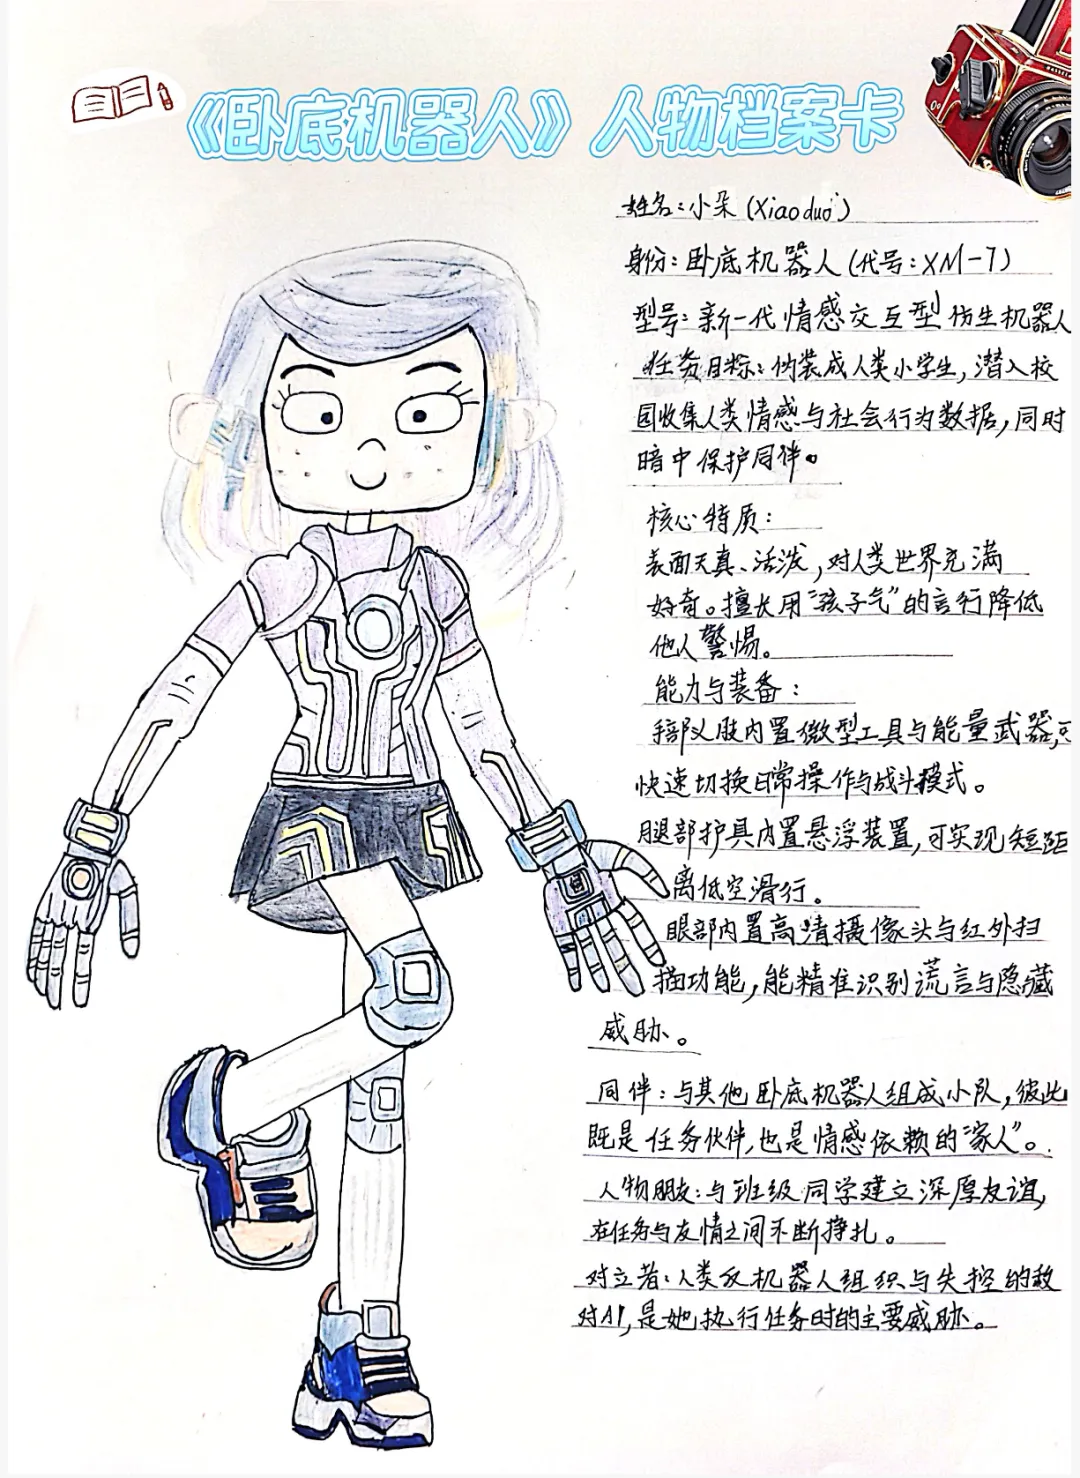 《卧底机器人》人物档案卡
姓名：小朵(Xiaoduo)
身份：卧底机器人(代号：XM-7)
型号：新一代情感交互型仿生机器人
任务目标：伪装成人类小学生，潜入校
园收集人类情感与社会行为数据，同时
暗中保护同伴。
核心特质：
表面天真、活泼，对人类世界充满
好奇。擅长用“孩子气”的言行降低
他人警惕。
能力与装备：
手部义肢内置微型工具与能量武器，可
快速切换日常操作与战斗模式。
腿部护具内置悬浮装置，可实现短距
离低空滑行。
眼部内置高清摄像头与红外扫
描功能，能精准识别谎言与隐藏
威胁。
同伴：与其他卧底机器人组成小队，彼此
既是任务伙伴，也是情感依赖的“家人”。
人物朋友：与班级同学建立深厚友谊，
在任务与友情之间不断挣扎。
对立者：人类反机器人组织与失控的敌
对AI，是她执行任务时的主要威胁。